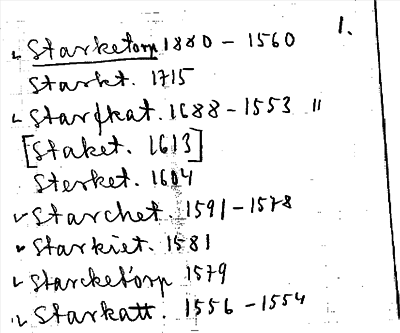 1.
✓ Starketorp 1880 - 1560
Starkt. 1715
✓ Starfkat. 1688 - 1553 "
[Staket. 1613]
Sterket. 1604
✓ Starchet. 1591 - 1578
✓ Starkiet. 1581
✓ Starcketorp 1579
✓ Starkatt. 1556 - 1554